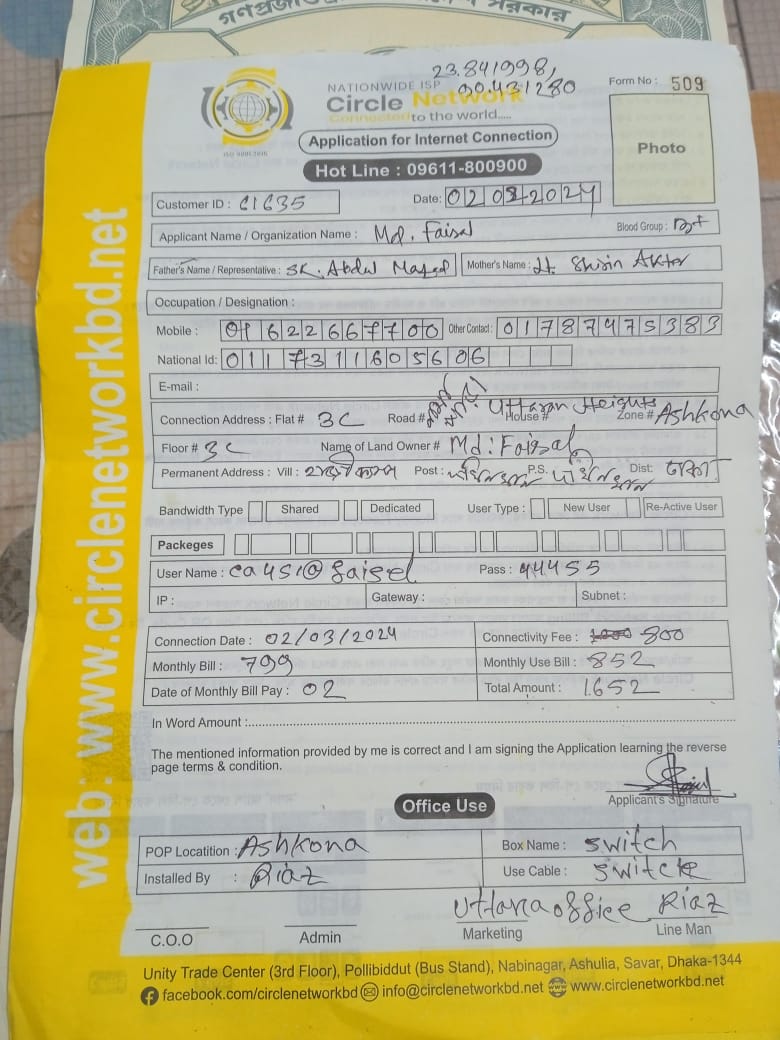 গণপ্রজাতন্ত্রী সরকার
23.841998,
90.431280
NATIONWIDE ISP
Circle Network
Connected to the world.....
ISO 9001:2015
Form No : 509
Application for Internet Connection
Photo
Hot Line : 09611-800900
Customer ID : C1635
Date: 02 03 2024
Applicant Name / Organization Name : Md. Faisal
Blood Group : B+
Father's Name / Representative : SK. Abdul Majed Mother's Name : Lt. Shirin Akter
Occupation / Designation :
Mobile : 01622667700 Other Contact : 01787475383
National Id: 0117311605606
E-mail :
Connection Address : Flat # 3C Road # House # Uttaran Heights Zone # Ashkona
Floor # 3C Name of Land Owner # Md: Faisal
Permanent Address : Vill : Post : P.S. Dist: ঢাকা
Bandwidth Type Shared Dedicated User Type : New User Re-Active User
Packeges
User Name : ca451@faisel Pass : 44455
IP : Gateway : Subnet :
Connection Date : 02/03/2024 Connectivity Fee : 1000 800
Monthly Bill : 799 Monthly Use Bill : 852
Date of Monthly Bill Pay : 02 Total Amount : 1652
In Word Amount :
The mentioned information provided by me is correct and I am signing the Application learning the reverse
page terms & condition.
Applicant's Signature
Office Use
POP Locatition : Ashkona Box Name : Switch
Installed By : Riaz Use Cable : Switck
Uttara office Riaz
C.O.O Admin Marketing Line Man
Unity Trade Center (3rd Floor), Pollibiddut (Bus Stand), Nabinagar, Ashulia, Savar, Dhaka-1344
facebook.com/circlenetworkbd info@circlenetworkbd.net www.circlenetworkbd.net
web: www.circlenetworkbd.net